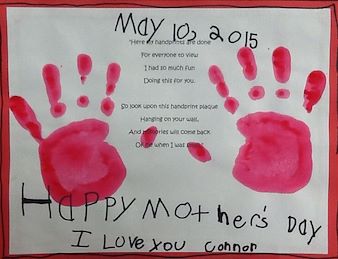 May 10, 2015
"Here my handprints are done
For everyone to view
I had so much fun
Doing this for you.
So look upon this handprint plaque
Hanging on your wall,
And memories will come back
Of me when I was
Happy Mother's Day
I Love you Connor